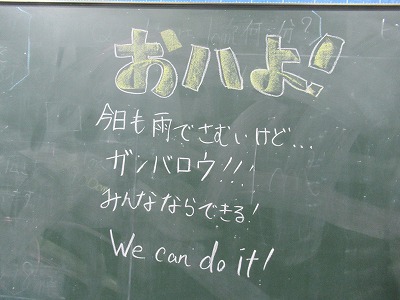 おハよ!
今日も雨でさむいけど...
ガンバロウ!!!
みんなならできる!
We can do it!